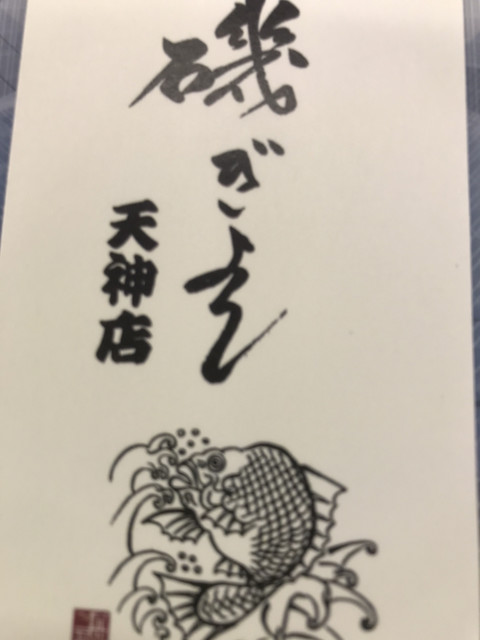 磯ぎよし
天神店